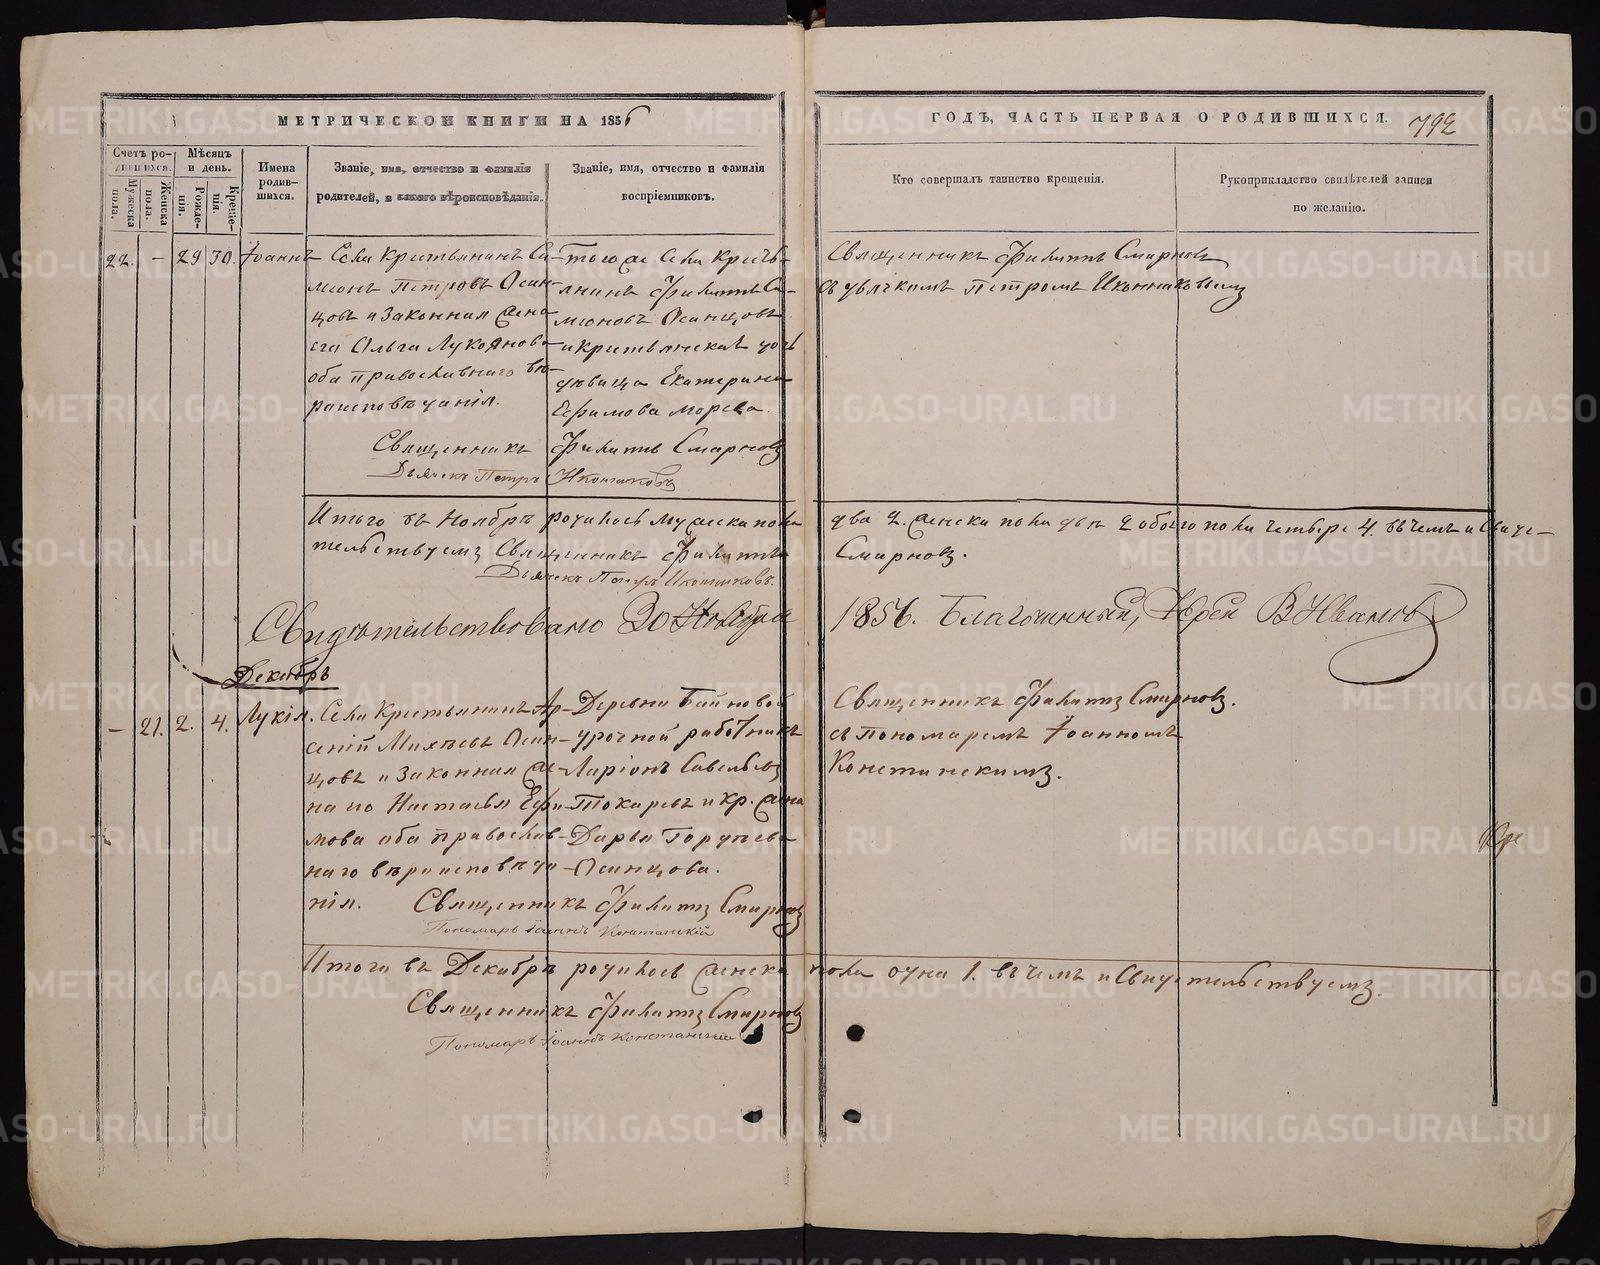 МЕТРИЧЕСКОЙ КНИГИ НА 1856
ГОДЪ, ЧАСТЬ ПЕРВАЯ О РОДИВШИХСЯ.
792
Счетъ ро-
дившихся.
Мужеска
пола.
Женска
пола.
Мѣсяцъ
и день.
Рожде-
нія.
Креще-
нія.
Имена
родив-
шихся.
Званіе, имя, отчество и фамилія
родителей, и какого вѣроисповѣданія.
Званіе, имя, отчество и фамилія
воспріемниковъ.
Кто совершалъ таинство крещенія.
Рукоприкладство свидѣтелей записи
по желанію.
22. – 29 30. Іоаннъ
Села Крестьянинъ Си-
меонъ Петровъ Осин-
цовъ и Законная жена
его Ольга Лукоянова
оба православнаго вѣ-
роисповѣданія.
тогоже Села Кресть-
янинъ Филиппъ Си-
меоновъ Осинцовъ
и крестьянская дочь
дѣвица Екатерина
Ефимова Морева.
Священникъ Филиппъ Смирновъ
Дьячекъ Петръ Иконниковъ
Священникъ Филиппъ Смирновъ
съ дьячкомъ Петромъ Иконниковымъ
Итого въ Ноябрѣ родилось мужеска пола два 2. женска пола двѣ 2 обоего пола четыре 4. въ чемъ и Свидѣ-
тельствуемъ Священникъ Филиппъ Смирновъ.
Дьячекъ Петръ Иконниковъ.
Свидѣтельствовано 30 Ноября 1856. Благочинный, Іерей В Ивановъ
Декабрь
– 21. 2. 4. Лукія.
Села Крестьянинъ Ар-
сеній Михѣевъ Осин-
цовъ и Законная же-
на его Настасья Ефи-
мова оба православ-
наго вѣроисповѣда-
нія.
Деревни Байновой
урочной работникъ
Ларіонъ Савельевъ
Токаревъ и кр. жена
Дарья Гордѣева
Осинцова.
Священникъ Филиппъ Смирновъ
Пономарь Іоаннъ Констанскій
Священникъ Филиппъ Смирновъ.
съ пономаремъ Іоанномъ
Констанскимъ.
Итого въ Декабрѣ родилось женска пола одна 1. въ чемъ и Свидѣтельствуемъ.
Священникъ Филиппъ Смирновъ
Пономарь Іоаннъ Констанскій
METRIKI.GASO-URAL.RU